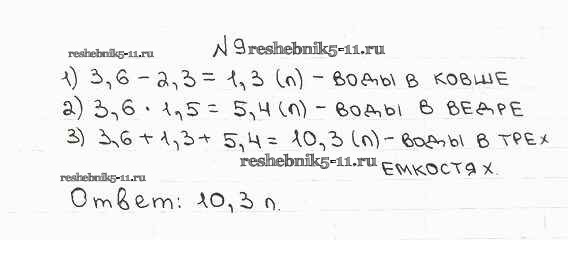 reshebnik5-11.ru № 9 reshebnik5-11.ru
1) 3,6 - 2,3 = 1,3 (л) - воды в ковше
2) 3,6 · 1,5 = 5,4 (л) - воды в ведре
3) 3,6 + 1,3 + 5,4 = 10,3 (л) - воды в трех
reshebnik5-11.ru емкостях.
reshebnik5-11.ru
Ответ: 10,3 л.